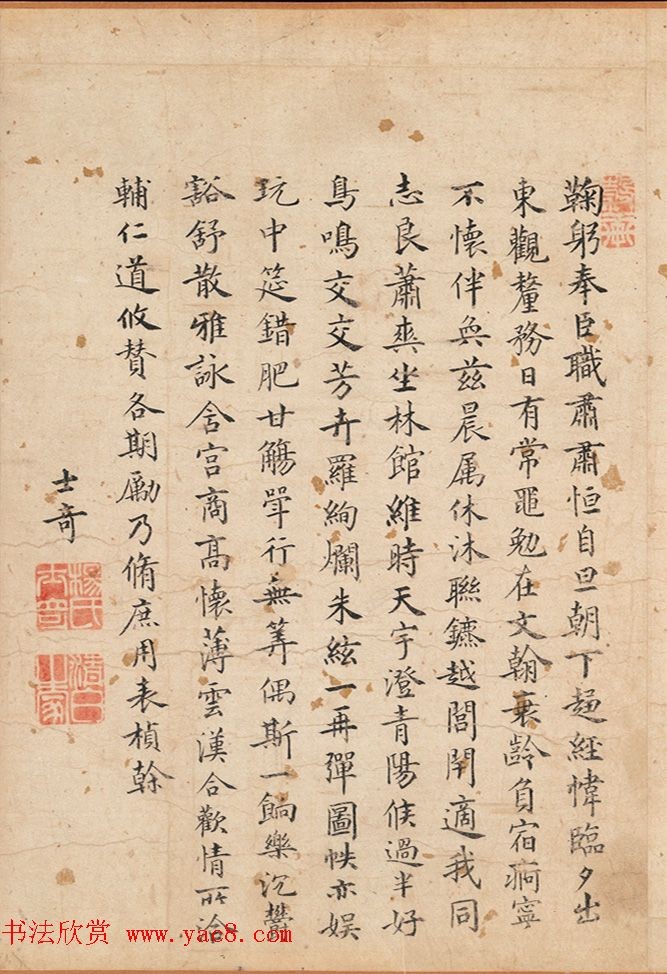 鞠躬奉臣職肅肅恒自旦朝下趍經幃臨夕出
東觀釐務日有常黽勉在文翰衰齡負宿痾寧
不懷伴奐茲晨属休沐聯鑣越閭閈適我同
志良蕭爽坐林館維時天宇澄青陽候過半好
鳥鳴交交芳卉羅絢爛朱絃一再彈圖帙亦娱
玩中筵錯肥甘觴斝行無筭偶斯一餉樂沉鬱
豁舒散雅詠含宮商高懷薄雲漢合歡情所洽
輔仁道攸賛各期勵乃脩庶用表楨榦
士奇
楊氏士奇
书法欣赏 www.yac8.com